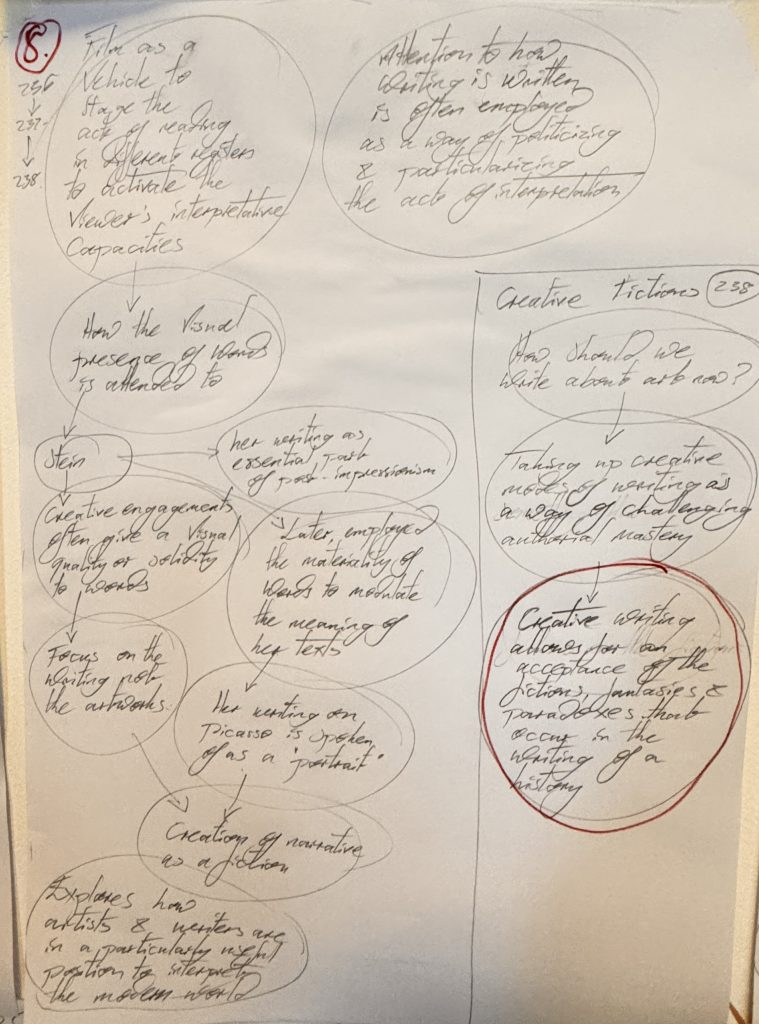 8.
236
237
238
Film as a
Vehicle to
stage the
act of reading
in different registers
to activate the
Viewer's interpretative
Capacities
Attention to how
writing is written
is often employed
as a way of politicizing
& particularizing
the act of interpretation
How the Visual
presence of words
is attended to
Stein
her writing as
essential part
of post-impressionism
Creative engagements
often give a Visual
quality or solidity
to words
Later, employed
the materiality of
words to modulate
the meaning of
her texts
Focus on the
writing not
the artworks
Her writing on
Picasso is spoken
of as a "portrait"
Creation of narrative
as a fiction
Explores how
artists & writers are
in a particularly useful
position to interpret
the modern world
Creative Fictions 238
How should we
write about art now?
Taking up creative
modes of writing as
a way of challenging
authorial mastery
Creative writing
allows for an
acceptance of the
fictions, fantasies &
paradoxes that
occur in the
writing of a
history